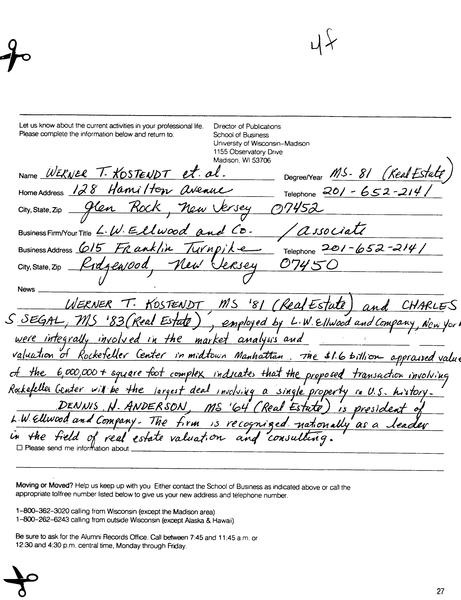 4f
Let us know about the current activities in your professional life.
Please complete the information below and return to.
Director of Publications
School of Business
University of Wisconsin–Madison
1155 Observatory Drive
Madison, WI 53706
Name WERNER T. KOSTENDT et. al. Degree/Year MS-81 (Real Estate)
Home Address 128 Hamilton Avenue Telephone 201-652-2141
City, State, Zip Glen Rock, New Jersey 07452
Business Firm/Your Title L.W. Ellwood and Co. / Associate
Business Address 615 Franklin Turnpike Telephone 201-652-2141
City, State, Zip Ridgewood, New Jersey 07450
News
WERNER T. KOSTENDT, MS '81 (Real Estate) and CHARLES
S SEGAL, MS '83 (Real Estate), employed by L.W. Ellwood and Company, New York
were integrally involved in the market analysis and
valuation of Rockefeller Center in midtown Manhattan. The $1.6 billion appraised value
of the 6,000,000 + square foot complex indicates that the proposed transaction involving
Rockefeller Center will be the largest deal involving a single property in U.S. history.
DENNIS H. ANDERSON, MS '64 (Real Estate) is president of
L.W. Ellwood and Company. The firm is recognized nationally as a leader
in the field of real estate valuation and consulting.
□ Please send me information about
Moving or Moved? Help us keep up with you Either contact the School of Business as indicated above or call the
appropriate tolfree number listed below to give us your new address and telephone number.
1–800–362–3020 calling from Wisconsin (except the Madison area)
1–800–262–6243 calling from outside Wisconsin (except Alaska & Hawaii)
Be sure to ask for the Alumni Records Office. Call between 7:45 and 11.45 a.m. or
12:30 and 4:30 p.m. central time, Monday through Friday.
27